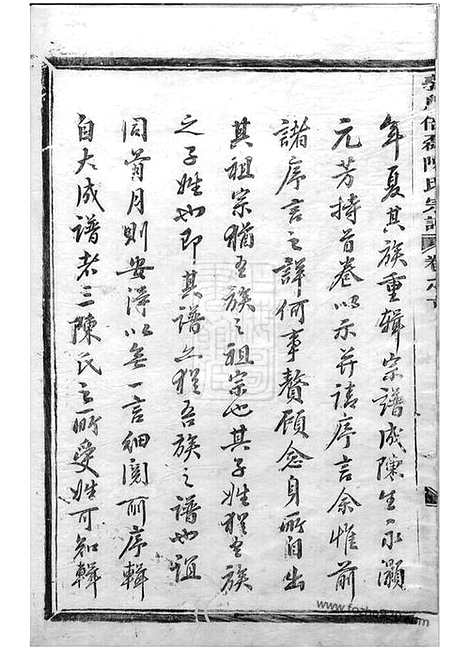 年夏其族重輯宗譜成陳生永灝
元芳持首卷以示并請序言余惟前
諸序言之詳何事贅顧念身所自出
其祖宗猶吾族之祖宗也其子姓猶吾族
之子姓也即其譜亦猶吾族之譜也誼
同一言細閱所序輯
自大成譜者三陳氏之所受姓可知輯
陳氏宗譜